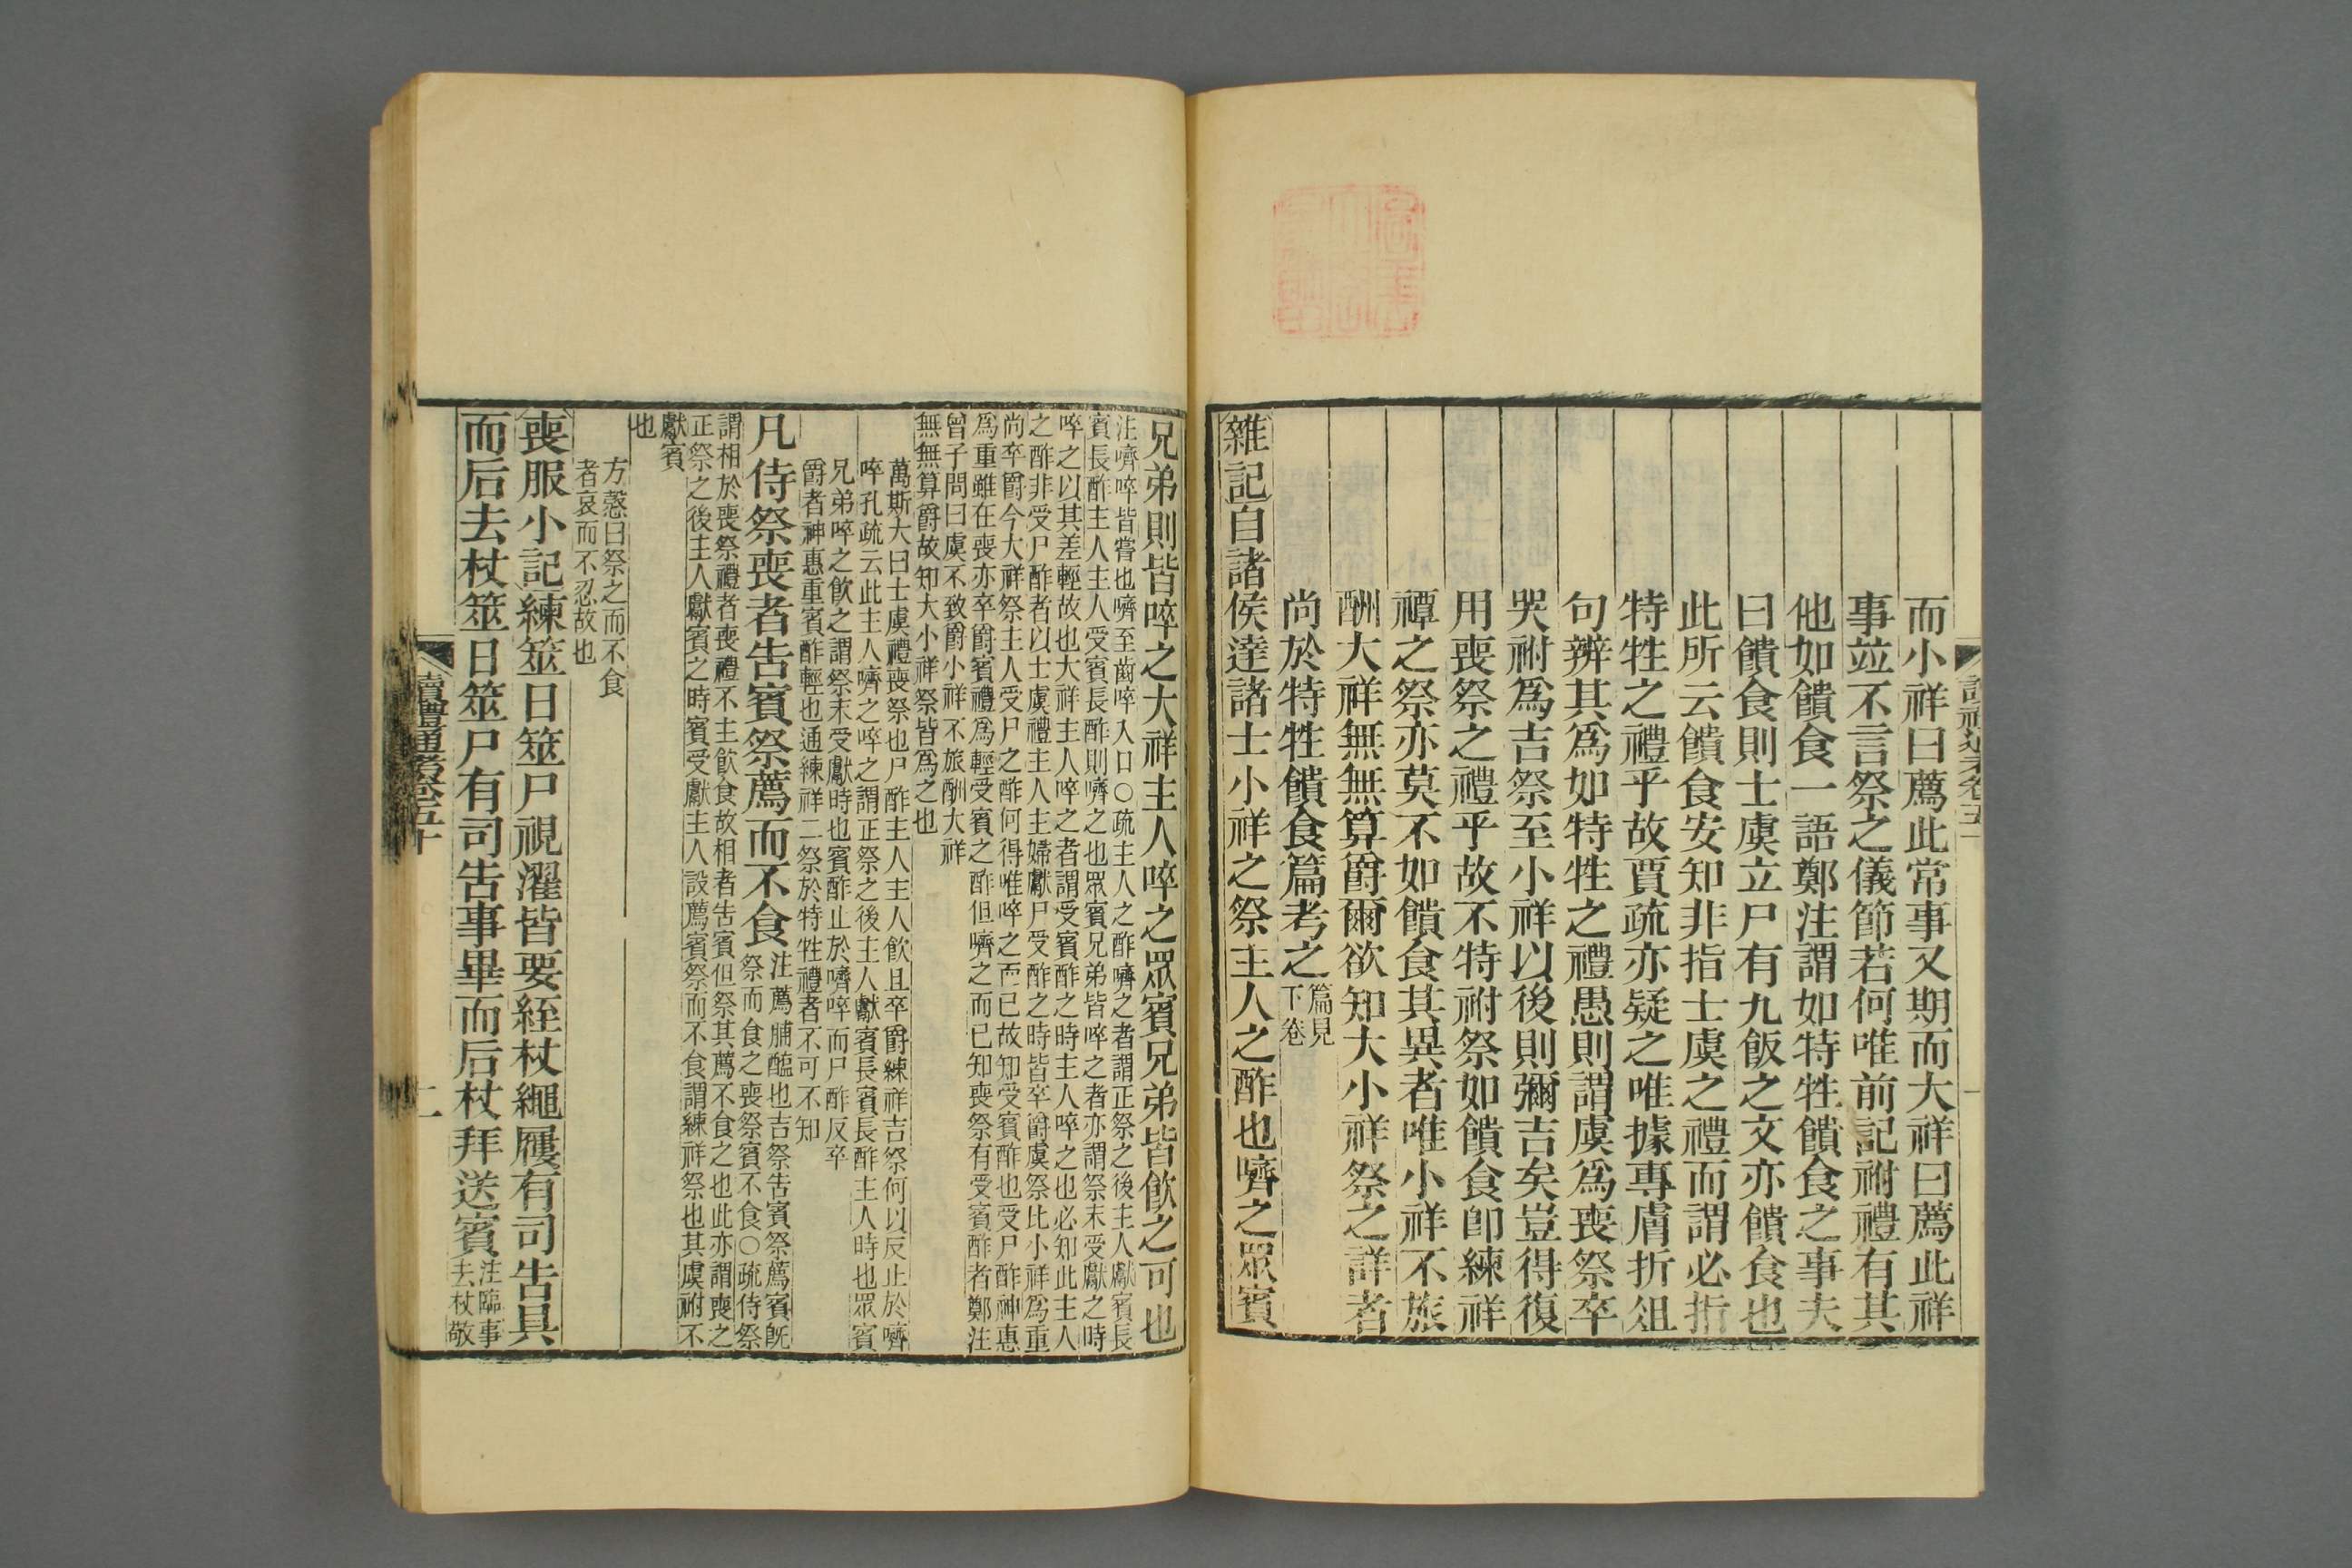 而小祥曰薦此常事又期而大祥曰薦此祥
事竝不言祭之儀節若何唯前記祔禮有其
他如饋食一語鄭注謂如特牲饋食之事夫
曰饋食則士虞立尸有九飯之文亦饋食也
此所云饋食安知非指士虞之禮而謂必指
特牲之禮乎故賈疏亦疑之唯據專膚折俎
句辨其爲如特牲之禮愚則謂虞爲喪祭卒
哭祔爲吉祭至小祥以後則彌吉矣豈得復
用喪祭之禮乎故不特祔祭如饋食卽練祥
禫之祭亦莫不如饋食其異者唯小祥不旅
酬大祥無無算爵爾欲知大小祥祭之詳者
尚於特牲饋食篇考之
篇見
下卷
雜記自諸侯達諸士小祥之祭主人之酢也嚌之眾賓
兄弟則皆啐之大祥主人啐之眾賓兄弟皆飮之可也
注嚌啐皆嘗也嚌至齒啐入口○疏主人之酢嚌之者謂正祭之後主人獻賓長
賓長酢主人主人受賓長酢則嚌之也眾賓兄弟皆啐之者亦謂祭末受獻之時
啐之以其差輕故也大祥主人啐之者謂受賓酢之時主人啐之也必知此主人
之酢非受尸酢者以士虞禮主人主婦獻尸受酢之時皆卒爵虞祭比小祥爲重
尚卒爵今大祥祭主人受尸之酢何得唯啐之而已故知受賓酢也受尸酢神惠
爲重雖在喪亦卒爵賓禮爲輕受賓之酢但嚌之而已知喪祭有受賓酢者鄭注
曾子問曰虞不致爵小祥不旅酬大祥
無無算爵故知大小祥祭皆爲之也
萬斯大曰士虞禮喪祭也尸酢主人主人飮且卒爵練祥吉祭何以反止於嚌
啐孔疏云此主人嚌之啐之謂正祭之後主人獻賓長賓長酢主人時也眾賓
兄弟啐之飮之謂祭末受獻時也賓酢止於嚌啐而尸酢反卒
爵者神惠重賓酢輕也通練祥二祭於特牲禮者不可不知
凡侍祭喪者告賓祭薦而不食
注薦脯醢也吉祭告賓祭薦賓旣
祭而食之喪祭賓不食○疏侍祭
謂相於喪祭禮者喪禮不主飮食故相者告賓但祭其薦不食之也此亦謂喪之
正祭之後主人獻賓之時賓受獻主人設薦賓祭而不食謂練祥祭也其虞祔不
獻賓
也
方慤曰祭之而不食
者哀而不忍故也
喪服小記練筮日筮尸視濯皆要絰杖繩屨有司告具
而后去杖筮日筮尸有司告事畢而后杖拜送賓
注臨事
去杖敬
讀禮通考卷五十
二